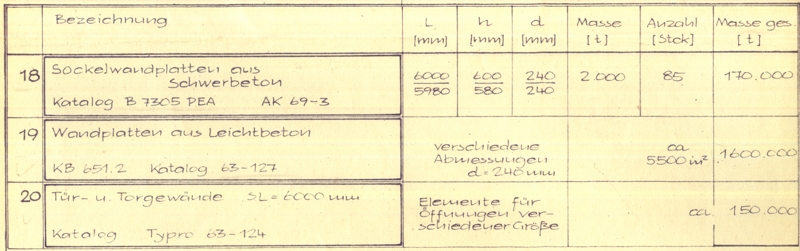 Bezeichnung L h d Masse Anzahl Masse ges.
[mm] [mm] [mm] [t] [Stck] [t]
18 Sockelwandplatten aus 6000 600 240 2.000 85 170.000
Schwerbeton 5980 580 240
Katalog B 7305 PEA AK 69-3
19 Wandplatten aus Leichtbeton verschiedene ca
Abmessungen 5500 m² 1600.000
KB 651.2 Katalog 63-127 d = 240 mm
20 Tür- u. Torgewände SL = 6000 mm Elemente für
Öffnungen ver- ca. 150.000
Katalog Typro 63-124 schiedener Größe